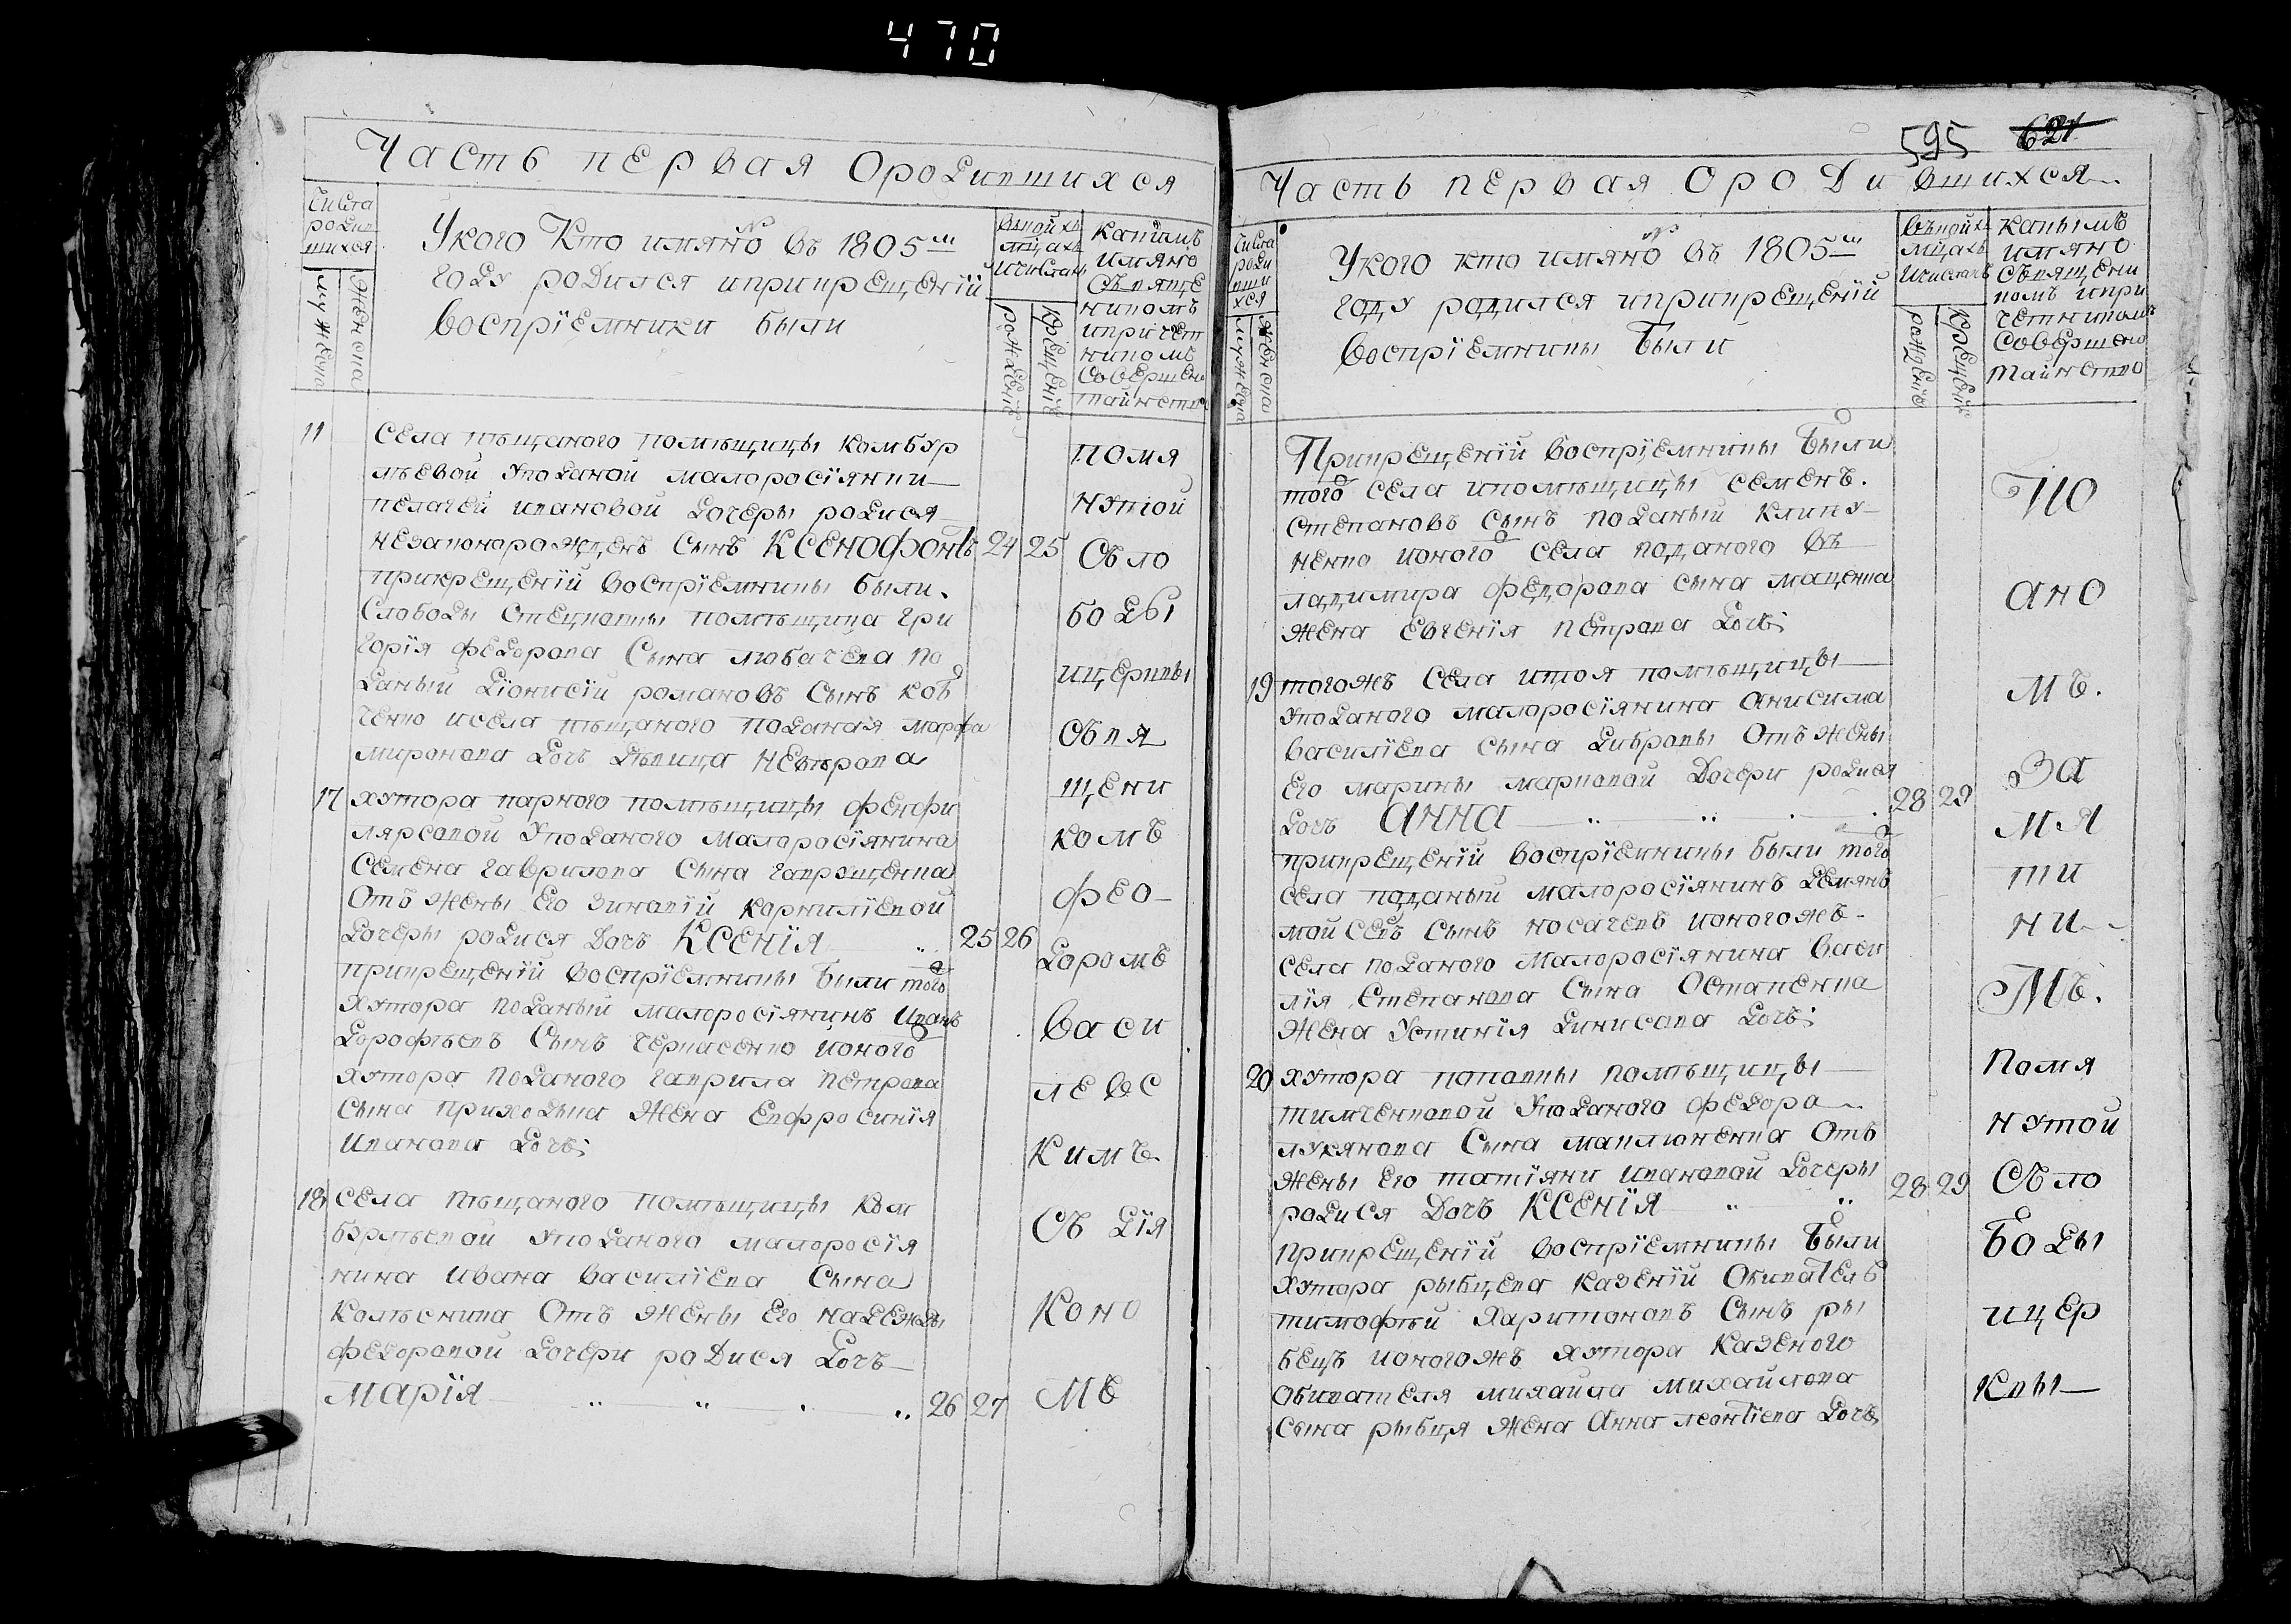 470
Часть первая Ородившихся
Числа
родив
шихся
мужеска
женска
Укого Кто имяно въ 1805м
году родился иприкрещенiй
воспрiемники были
вкойхъ
мцахъ
ичислахъ
рожденiе
крещенiе
каким
имяно
Свяще
никомъ
ипричет
никомъ
Совершено
таинство
11
села пѣщаного помѣщицы комбур
лѣевой Уподаной малоросiянки
пелагеи ивановой дочеры родися
незаконорожденъ Сынъ КСЕНОФОНТЪ 24 25
прикрещенiй воспрiемники были
Слободы Стецковки помѣщика гри
горiя федорова Сына любачева по
даный дiонисiй романовъ Сынъ коб
ченко исела пѣщаного поданая марфа
миронова дочь дѣвица неврова
17 хутора парного помѣщицы фенфи
лярсовой Уподаного малоросiянина
Семена гаврилова Сына гаврощенка
Отъ жены Его Зиновiй корнилiевой
дочеры родися дочь КСЕНIЯ 25 26
прикрещенiй воспрiемники были того
хутора поданый малоросiянинъ иванъ
дорофѣевъ Сынъ черкасенко ионого
хутора поданого гаврила петрова
сына приходька жена Евфросинiя
иванова дочь;
18 села пѣщаного помѣщицы ком
бурлѣевой Уподаного малоросiя
нина ивана василiева Сына
колѣсника Отъ жены Его надежды
федоровой дочери родися дочь
МАРIЯ 26 27
помя
нутой
Сѣло
боды
ицерквы
Свя
щени
комъ
фео
доромъ
васи
левс
кимъ
Съ дiя
коно
мъ
595 621
Часть первая Ородившихся
Числа
роди
вши
хся
мужеска
женска
Укого кто имяно въ 1805м
году родился иприкрещенiй
воспрiемники были
въкойх
мцахъ
ичислахъ
рожденiе
крещенiе
какимъ
имяно
Священи
комъ ипри
четникомъ
Совершено
таинство
Прикрещенiй воспрiемники были
того села ипомѣщицы семенъ
степановъ сынъ поданый клипу
ненко ионого села поданого въ
ладимира федорова сына маценка
жена Евгенiя петрова дочь;
19 тогожъ Села итоя помѣщицы
Уподаного малоросiянина Анисима
василiева сына дибровы Отъ жены
Его марины марковой дочери родися
дочь АННА 28 29
прикрещенiй воспрiемники были того
села поданый малоросiянинъ демянъ
моисеевъ сынъ носачевъ ионогожъ
села поданого малоросiянина васи
лiя Степанова Сына Остапенка
жена Устинiя динисова дочь;
20 хутора поповки помѣщицы
тимченковой Уподаного федора
лукянова Сына манюненка Отъ
жены Его татiяни ивановой дочеры
родися дочь КСЕНIЯ 28 29
прикрещенiй воспрiемники были
хутора рыбцева казенiй Обиватель
тимофѣй харитоновъ Сынъ ры
бецъ ионогожъ хутора казеного
Обивателя михаила михайлова
сына рыбця жена Анна леонтiева дочь
ПО
ано
мъ.
За
мя
ти
ни
мъ.
помя
нутой
Сѣло
боды
ицер
квы